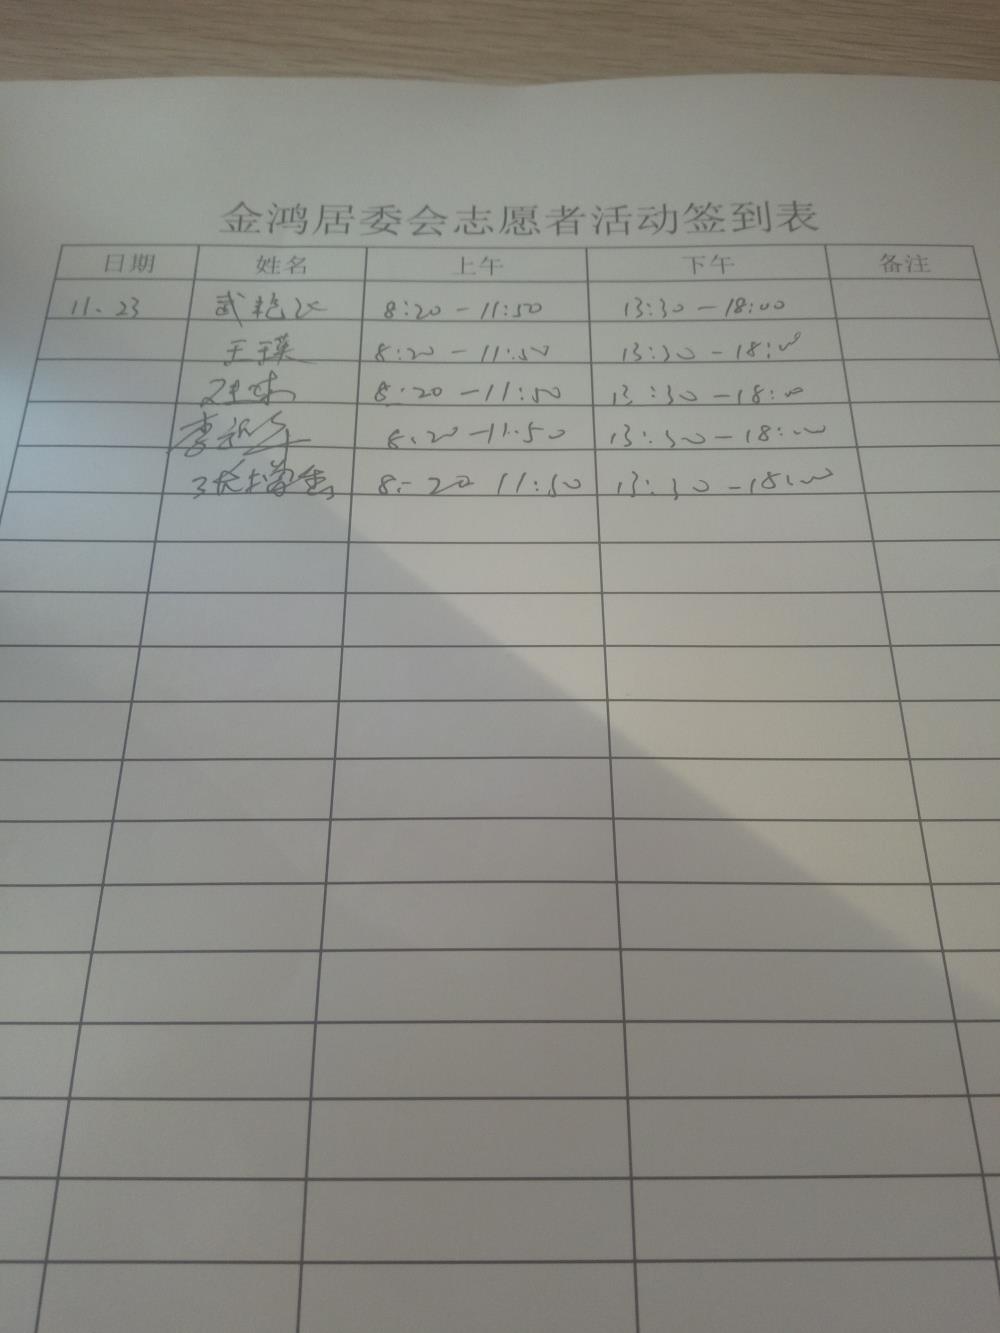 金鸿居委会志愿者活动签到表
日期 姓名 上午 下午 备注
11.23 武艳 8:20-11:50 13:30-18:00
王瑛 8:20-11:50 13:30-18:00
8:20-11:50 13:30-18:00
李 8:20-11:50 13:30-18:00
8:-20 11:50 13:30-18:00